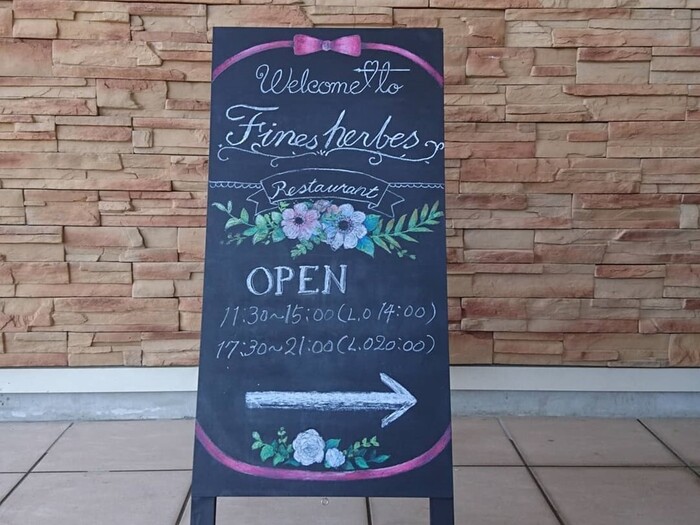 Welcome to
Fines herbes
Restaurant
OPEN
11:30~15:00(L.O 14:00)
17:30~21:00(L.O20:00)